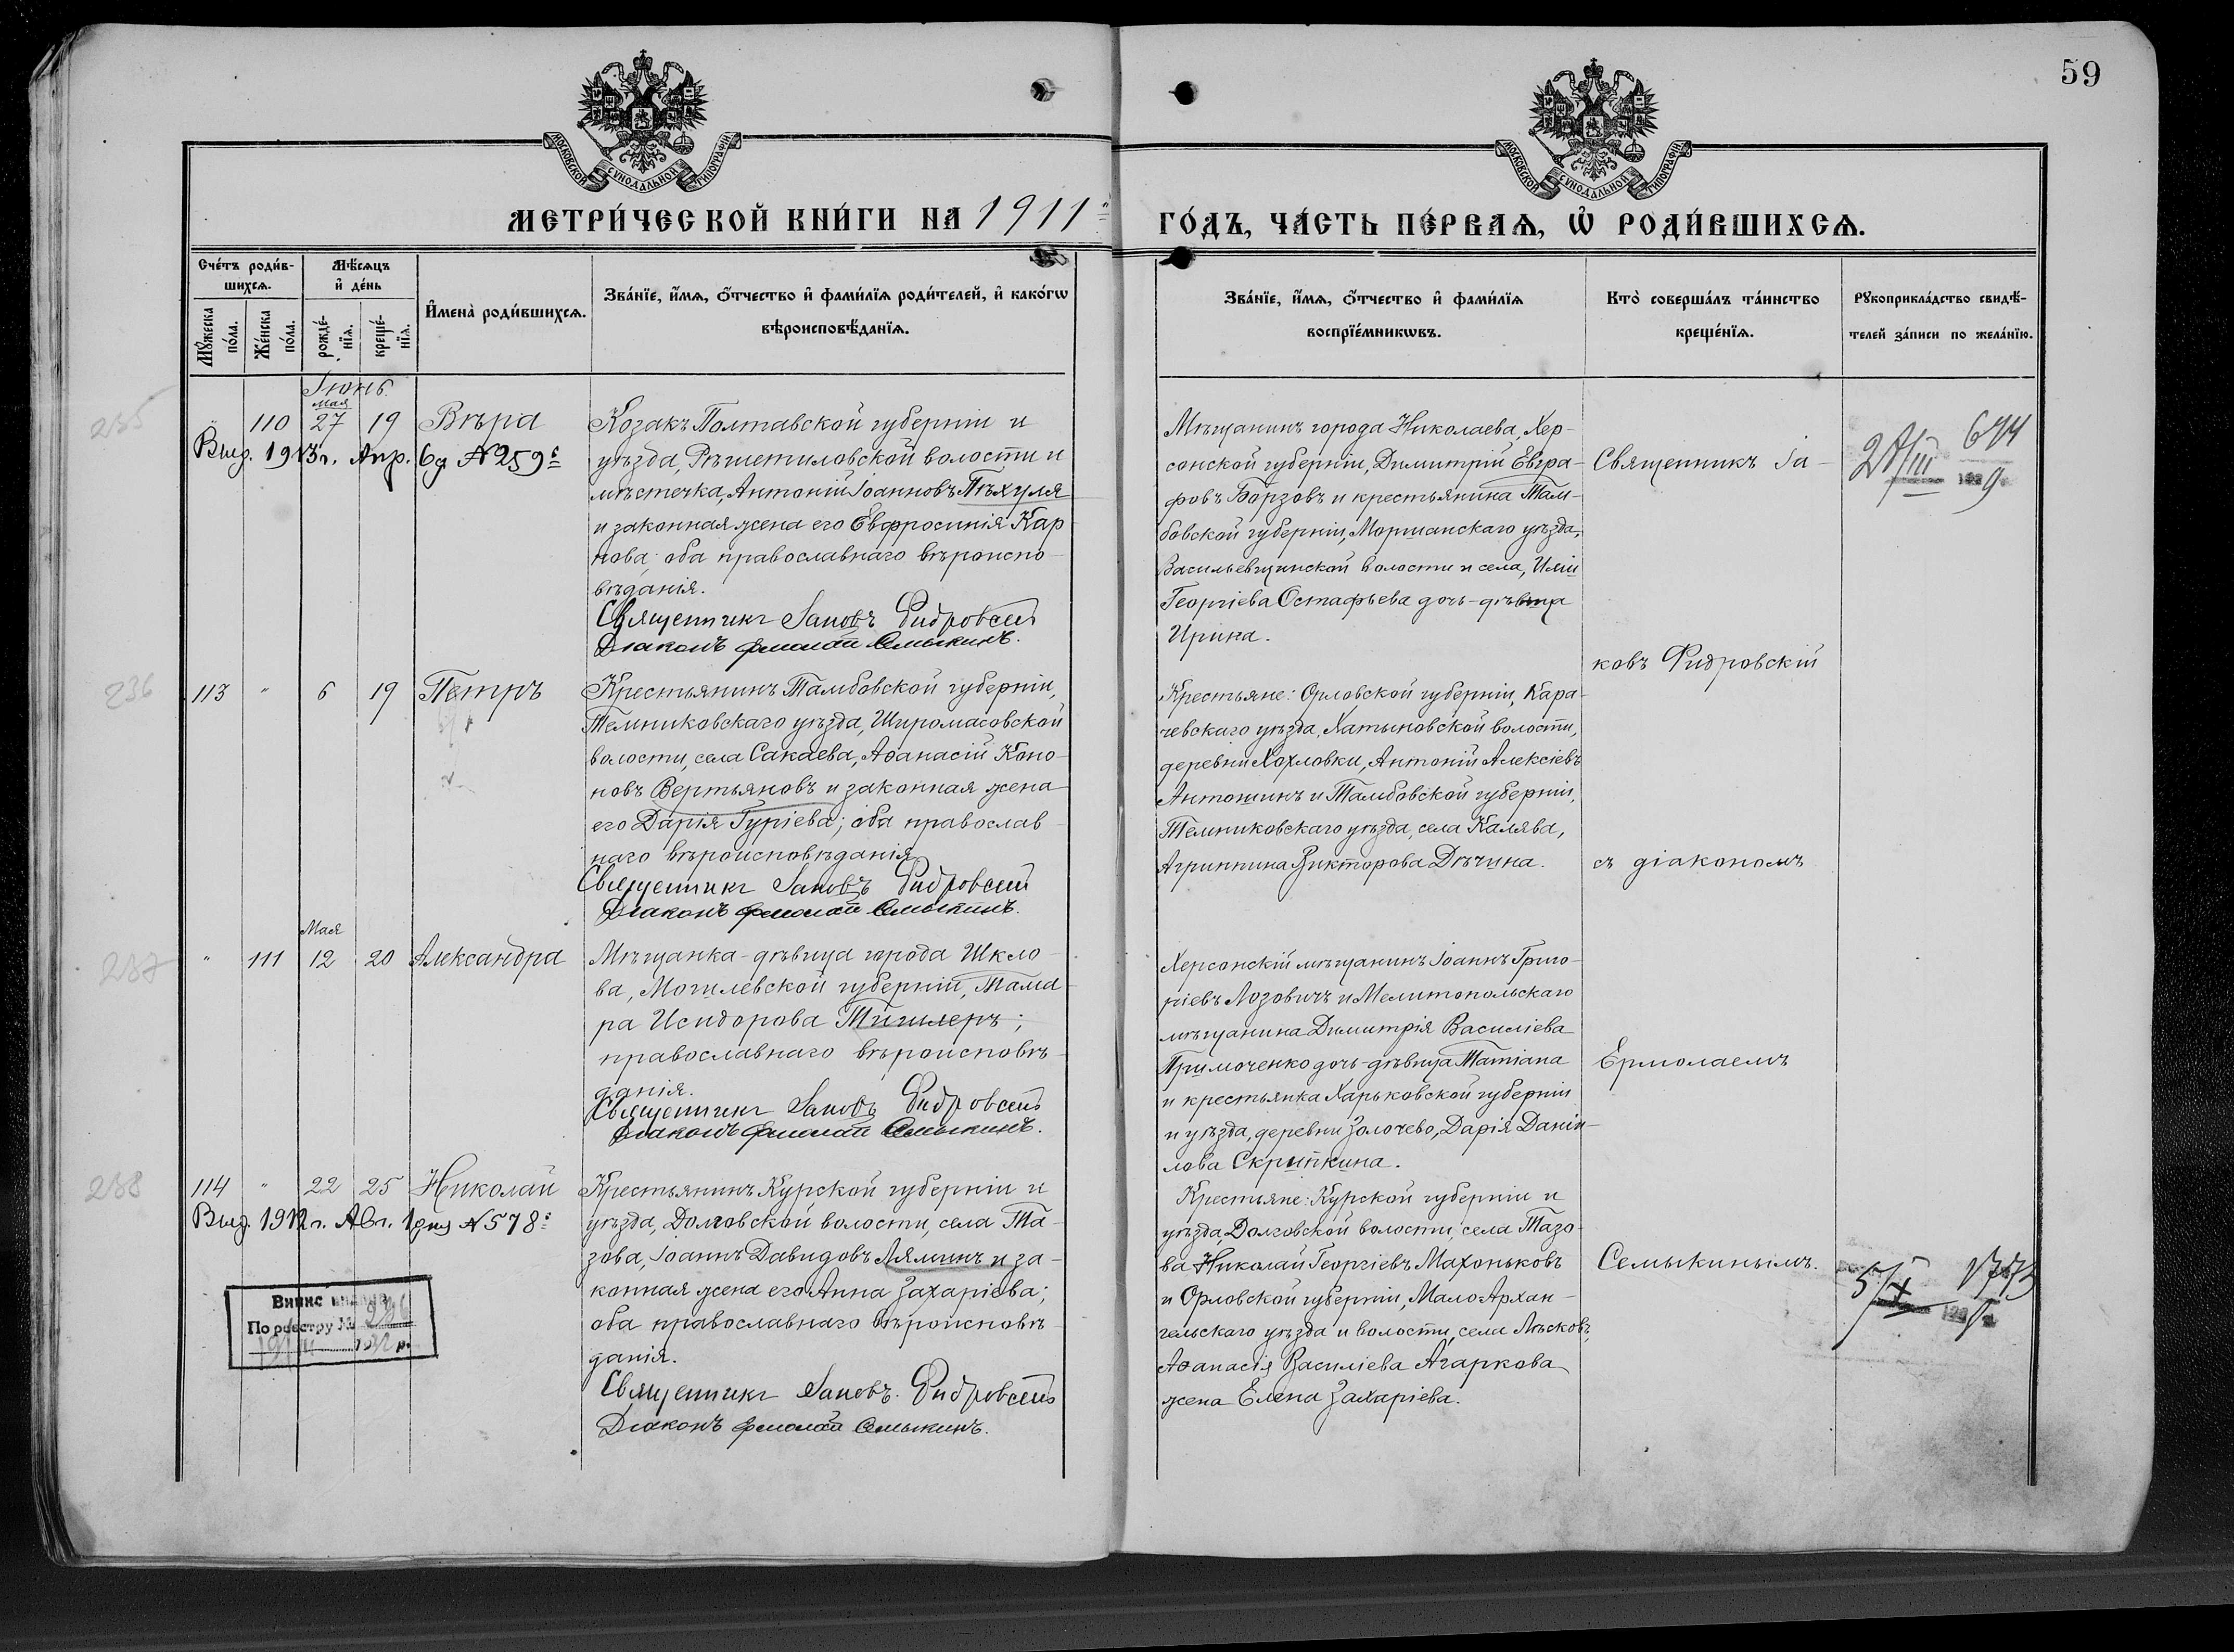 59
МОСКОВСКОЙ СѴНОДАЛЬНОЙ ТИПОГРАФІИ
МОСКОВСКОЙ СѴНОДАЛЬНОЙ ТИПОГРАФІИ
МЕТРИ́ЧЕСКОЙ КНИ́ГИ НА 1911
ГО́ДЪ, ЧА́СТЬ ПЕ́РВАѦ, Ѡ҆ РОДИ́ВШИХСѦ.
Сче́тъ роди́в-
шихсѧ.
Мꙋ́жеска по́ла.
Же́нска по́ла.
Мѣ́сѧцъ
и҆ де́нь
рожде́-
нїѧ.
креще́-
нїѧ.
И҆мена̀ роди́вшихсѧ.
Зва́нїе, и҆́мѧ, ѻ҆́тчество и҆ фами́лїѧ роди́телей, и҆ како́гѡ
вѣроисповѣ́данїѧ.
Зва́нїе, и҆́мѧ, ѻ҆́тчество и҆ фами́лїѧ
воспрїе́мникѡвъ.
Кто̀ соверша́лъ та́инство
креще́нїѧ.
Рꙋкоприкла́дство свидѣ́-
телей за́писи по жела́нїю.
Іюнь.
235
" 110 мая 27 19 Вѣра
Выд. 1913 г. Апр. 6 д № 259
Козакъ Полтавской губерніи и
уѣзда, Рѣшетиловской волости и
мѣстечка, Антоній Іоанновъ Пѣхуля
и законная жена его Евфросинія Кар
пова; оба православнаго вѣроиспо-
вѣданія.
Священникъ Іаковъ Фидровскій
Діаконъ Ермолай Семыкинъ.
Мѣщанинъ города Николаева, Хер-
сонской губерніи, Димитрій Евгра-
фовъ Борзовъ и крестьянина Там-
бовской губерніи, Моршанскаго уѣзда,
Васильевщинской волости и села, Иліи
Георгіева Остафьева дочь-дѣвица
Ирина.
Священникъ Іа-
ковъ Фидровскій
съ діакономъ
Ермолаемъ
Семыкинымъ.
236
113 " 6 19 Петръ
Крестьянинъ Тамбовской губерніи,
Темниковскаго уѣзда, Широмасовской
волости, села Сакаева, Аѳанасій Коно-
новъ Вертьяновъ и законная жена
его Дарія Гуріева; оба православ
наго вѣроисповѣданія
Священникъ Іаковъ Фидровскій
Діаконъ Ермолай Семыкинъ.
Крестьяне: Орловской губерніи, Кара-
чевскаго уѣзда, Хатыновской волости,
деревни Хохловки, Антоній Алексіевъ
Антошинъ и Тамбовской губерніи,
Темниковскаго уѣзда, села Каляева,
Агриппина Викторова Дѣчина.
237
Мая
" 111 12 20 Александра
Мѣщанка-дѣвица города Шкло-
ва, Могилевской губерніи, Тама
ра Исидорова;
православнаго вѣроисповѣ-
данія.
Священникъ Іаковъ Фидровскій
Діаконъ Ермолай Семыкинъ.
Херсонскій мѣщанинъ Іоаннъ Григо-
ріевъ Лозовичъ и Мелитопольскаго
мѣщанина Димитрія Василіева
Примоченко дочь-дѣвица Татіана
и крестьянка Харьковской губерніи
и уѣзда, деревни Золочево, Дарія Даніи-
лова Скрипкина.
238
114 " 22 25 Николай
Выд. 1912 г. Авг. 1 дня № 578
Крестьянинъ Курской губерніи и
уѣзда, Долговской волости, села Та-
зова, Іоаннъ Давидовъ Лялинъ и за-
конная жена его Анна Захаріева;
оба православнаго вѣроисповѣ-
данія.
Священникъ Іаковъ Фидровскій
Діаконъ Ермолай Семыкинъ.
Крестьяне: Курской губерніи и
уѣзда, Долговской волости, села Тазо-
ва Николай Георгіевъ Махоньковъ
и Орловской губерніи, Мало Архан-
гельскаго уѣзда и волости, села Лѣсковъ,
Аѳанасія Василіева Агаркова
жена Елена Захаріева.
По реестру №